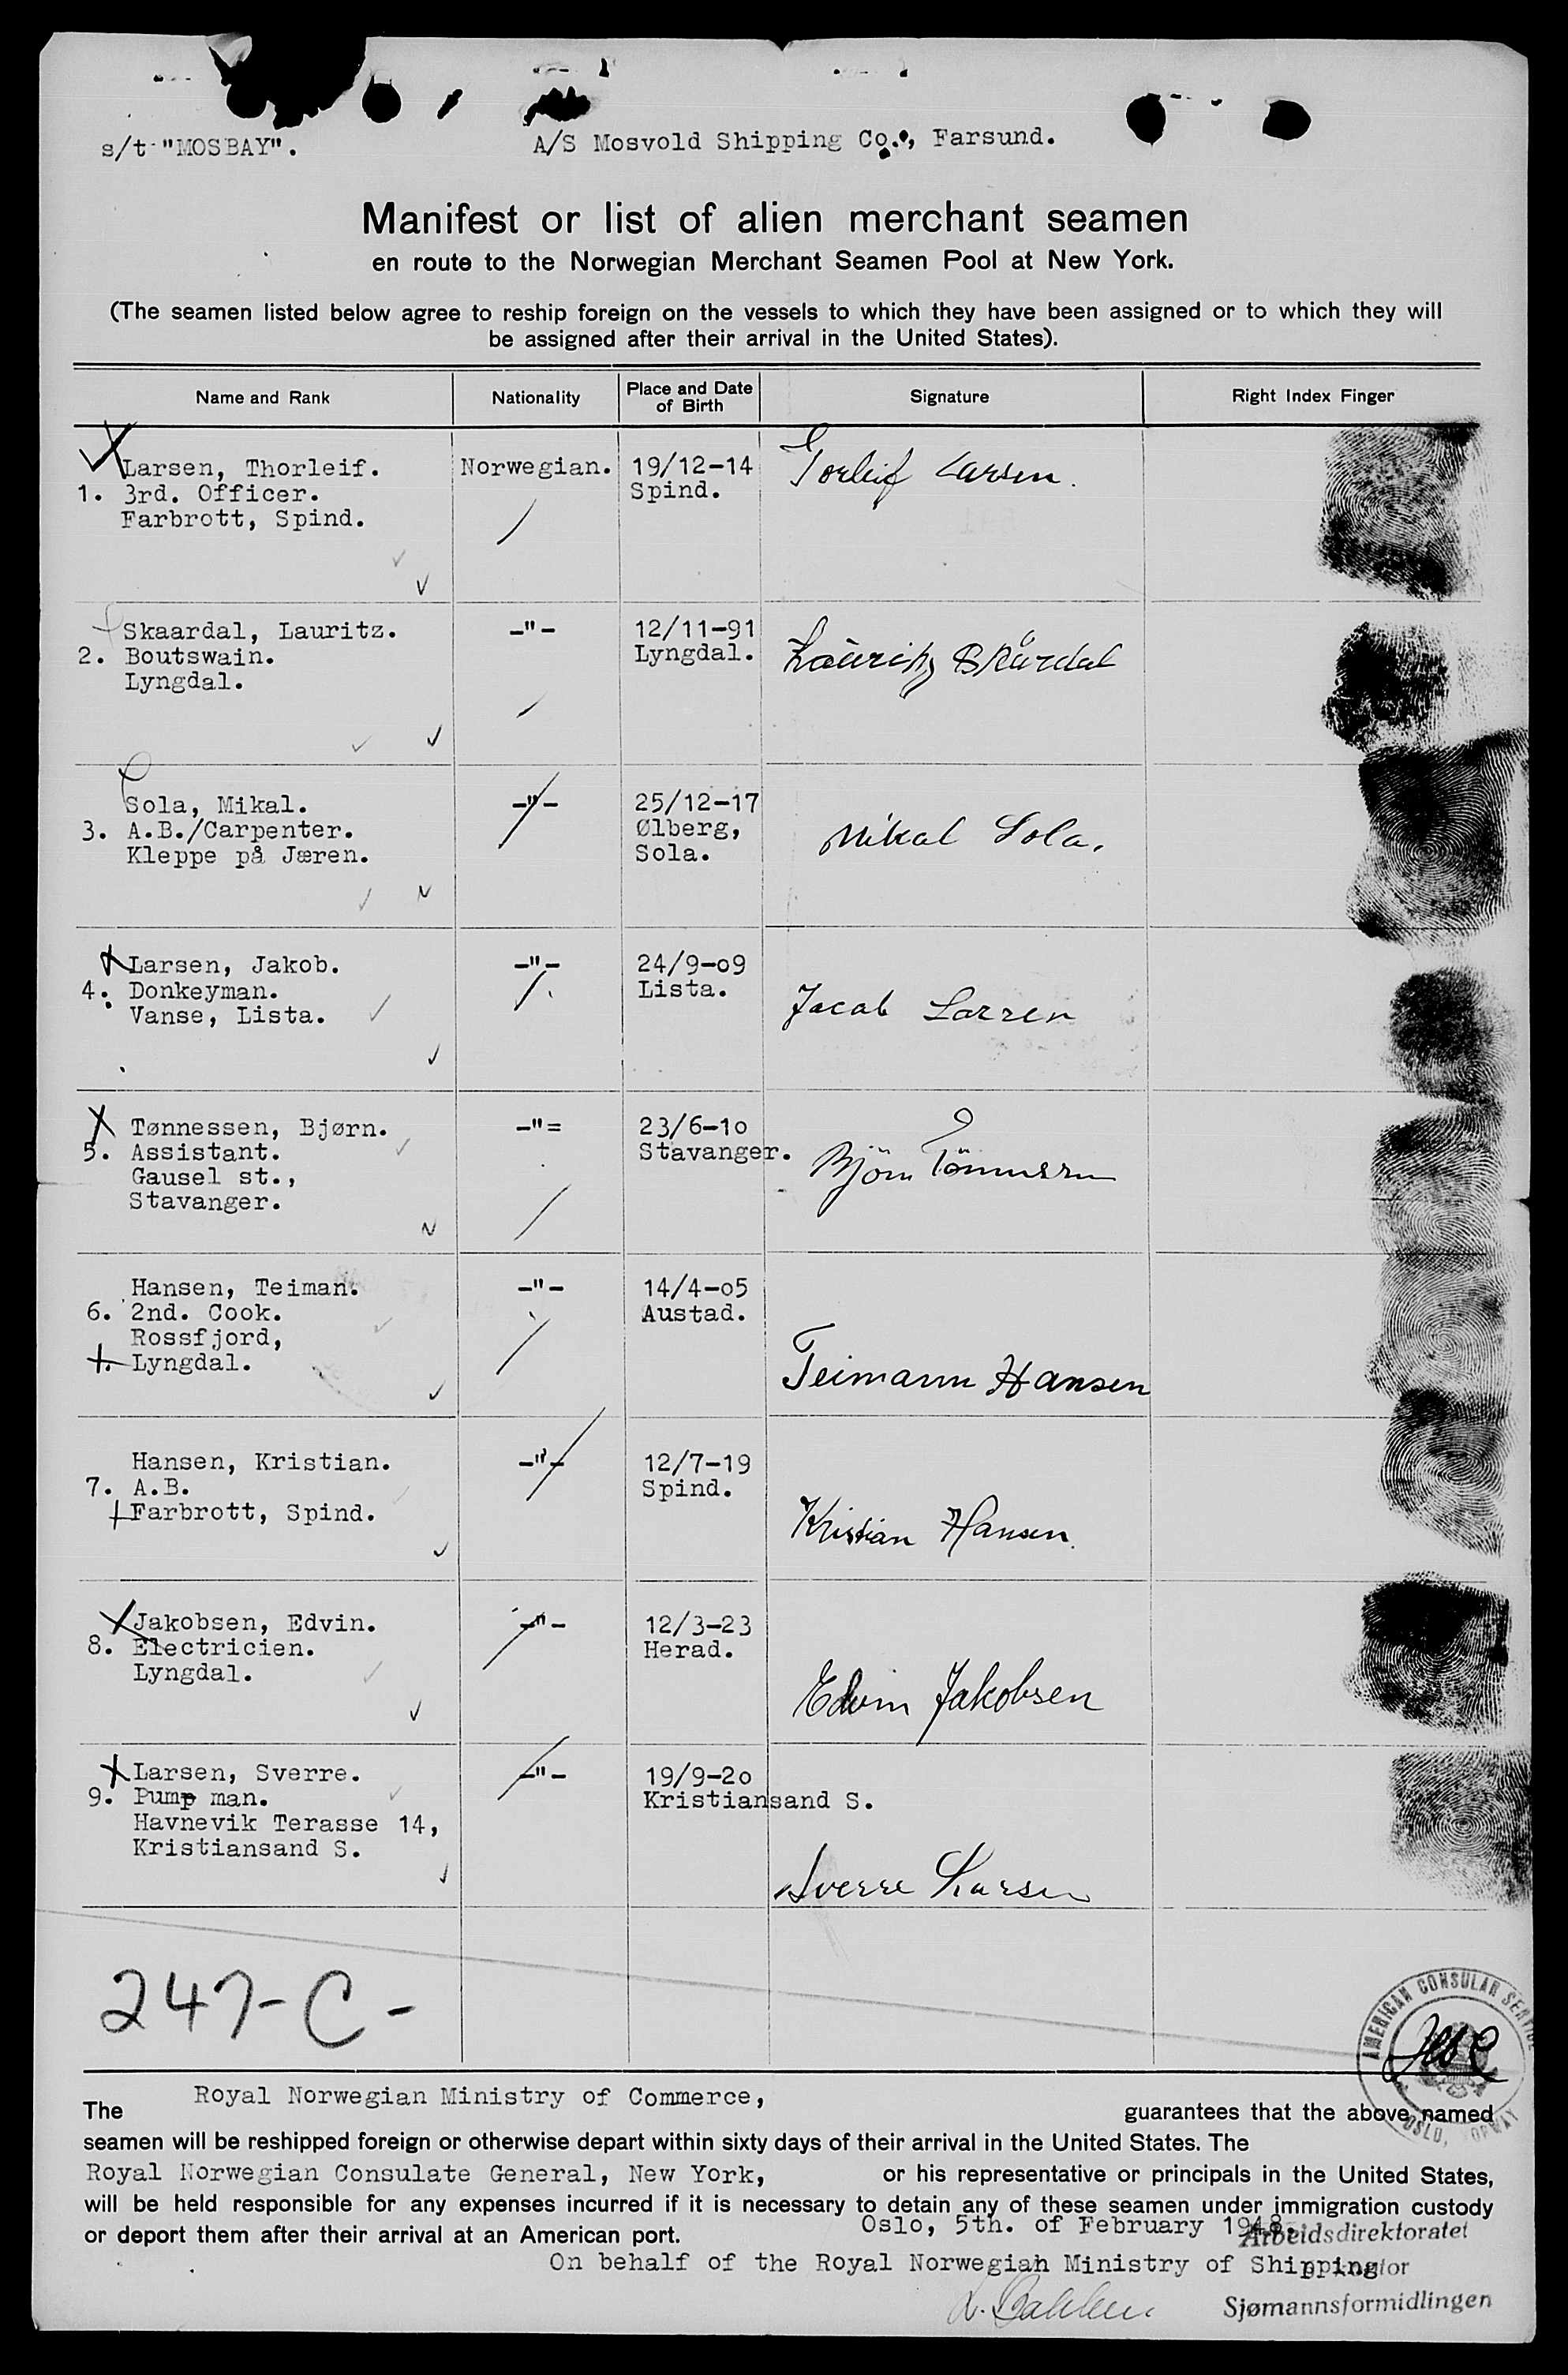 s/t "MOSBAY".
A/S Mosvold Shipping Co., Farsund.
Manifest or list of alien merchant seamen
en route to the Norwegian Merchant Seamen Pool at New York.
(The seamen listed below agree to reship foreign on the vessels to which they have been assigned or to which they will
be assigned after their arrival in the United States).
Name and Rank Nationality Place and Date of Birth Signature Right Index Finger
Larsen, Thorleif. Norwegian. 19/12-14 Torleif Larsen.
1. 3rd. Officer. Spind.
Farbrott, Spind.
Skaardal, Lauritz. -"- 12/11-91
2. Boutswain. Lyngdal. Lauritz Skårdal
Lyngdal.
Sola, Mikal. -"- 25/12-17
3. A.B./Carpenter. Ølberg, Mikal Sola.
Kleppe på Jæren. Sola.
Larsen, Jakob. -"- 24/9-o9
4. Donkeyman. Lista. Jacab Larsen
Vanse, Lista.
Tønnessen, Bjørn. -"= 23/6-1o
5. Assistant. Stavanger. Björn Tönnessen
Gausel st.,
Stavanger.
Hansen, Teiman. -"- 14/4-o5
6. 2nd. Cook. Austad.
Rossfjord,
Lyngdal. Teimann Hansen
Hansen, Kristian. -"- 12/7-19
7. A.B. Spind.
Farbrott, Spind. Kristian Hansen.
Jakobsen, Edvin. -"- 12/3-23
8. Electricien. Herad.
Lyngdal. Edvin Jakobsen
Larsen, Sverre. -"- 19/9-2o
9. Pump man. Kristiansand S.
Havnevik Terasse 14,
Kristiansand S. Sverre Larsen
247-C-
AMERICAN CONSULAR SERVICE
OSLO, NORWAY
The Royal Norwegian Ministry of Commerce, guarantees that the above named
seamen will be reshipped foreign or otherwise depart within sixty days of their arrival in the United States. The
Royal Norwegian Consulate General, New York, or his representative or principals in the United States,
will be held responsible for any expenses incurred if it is necessary to detain any of these seamen under immigration custody
or deport them after their arrival at an American port. Oslo, 5th. of February 1948.
Arbeidsdirektoratet
On behalf of the Royal Norwegian Ministry of Shipping
Sjømannsformidlingen